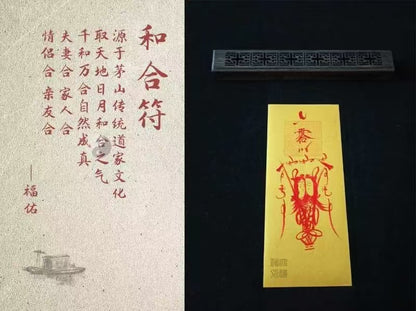 和合符
源于茅山传统道家文化
取天地日月和合之气
千和万合自然成真
夫妻合 家人合
情侣合 亲友合
——福佑